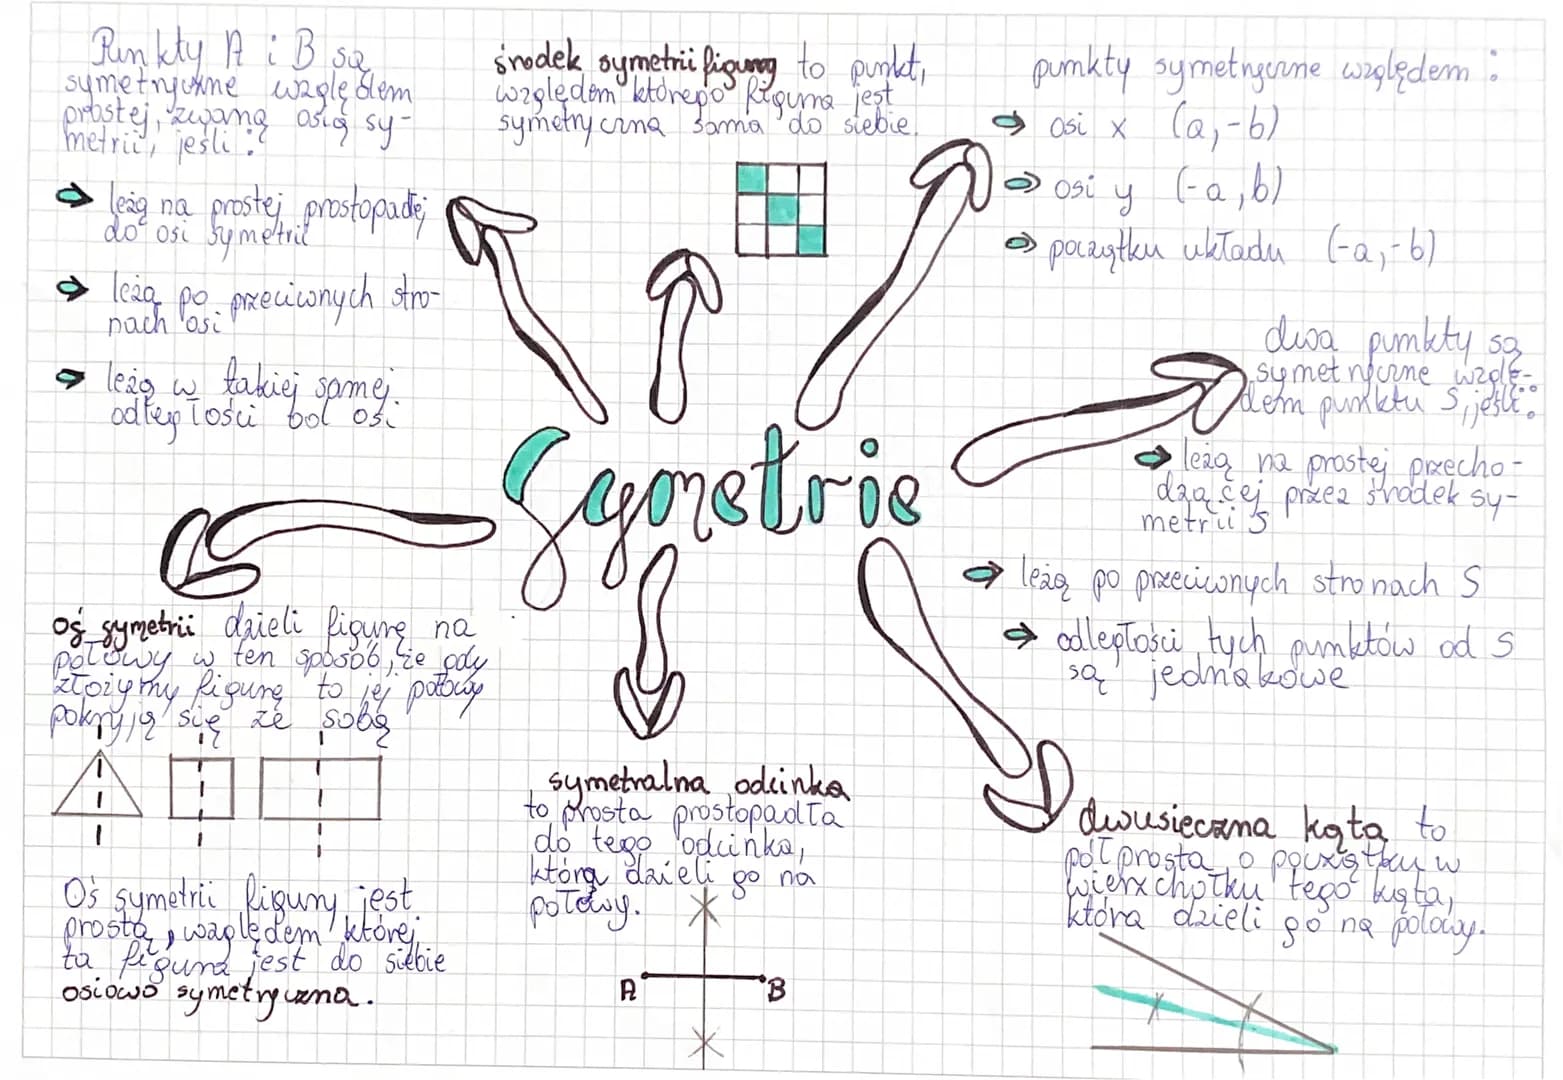 Punkty A i B są
symetryczne względem
prostej, zwaną osią sy-
metrii, jeśli:
leżą na prostej prostopadłej
do osi symetrii
leżą po przeciwnych stro-
nach osi
leżą w takiej samej
odległości od osi
środek symetrii figury to punkt,
względem którego figura jest
symetryczna sama do siebie.
punkty symetryczne względem:
osi x (a,-b)
osi y (-a,b)
początku układu (-a,-b)
dwa punkty są
symetryczne wzglę-
dem punktu S, jeśli:
leżą na prostej przecho-
dzącej przez środek sy-
metrii S
leżą po przeciwnych stronach S
odległości tych punktów od S
są jednakowe
Symetrie
oś symetrii dzieli figurę na
połowy w ten sposób, że gdy
złożymy figurę to jej połowy
pokryją się ze sobą
Oś symetrii figury jest
prostą, względem której
ta figura jest do siebie
osiowo symetryczna.
symetralna odcinka
to prosta prostopadła
do tego odcinka,
która dzieli go na
połowy.
A B
dwusieczna kąta to
półprosta o początku w
wierzchołku tego kąta,
która dzieli go na połowy.